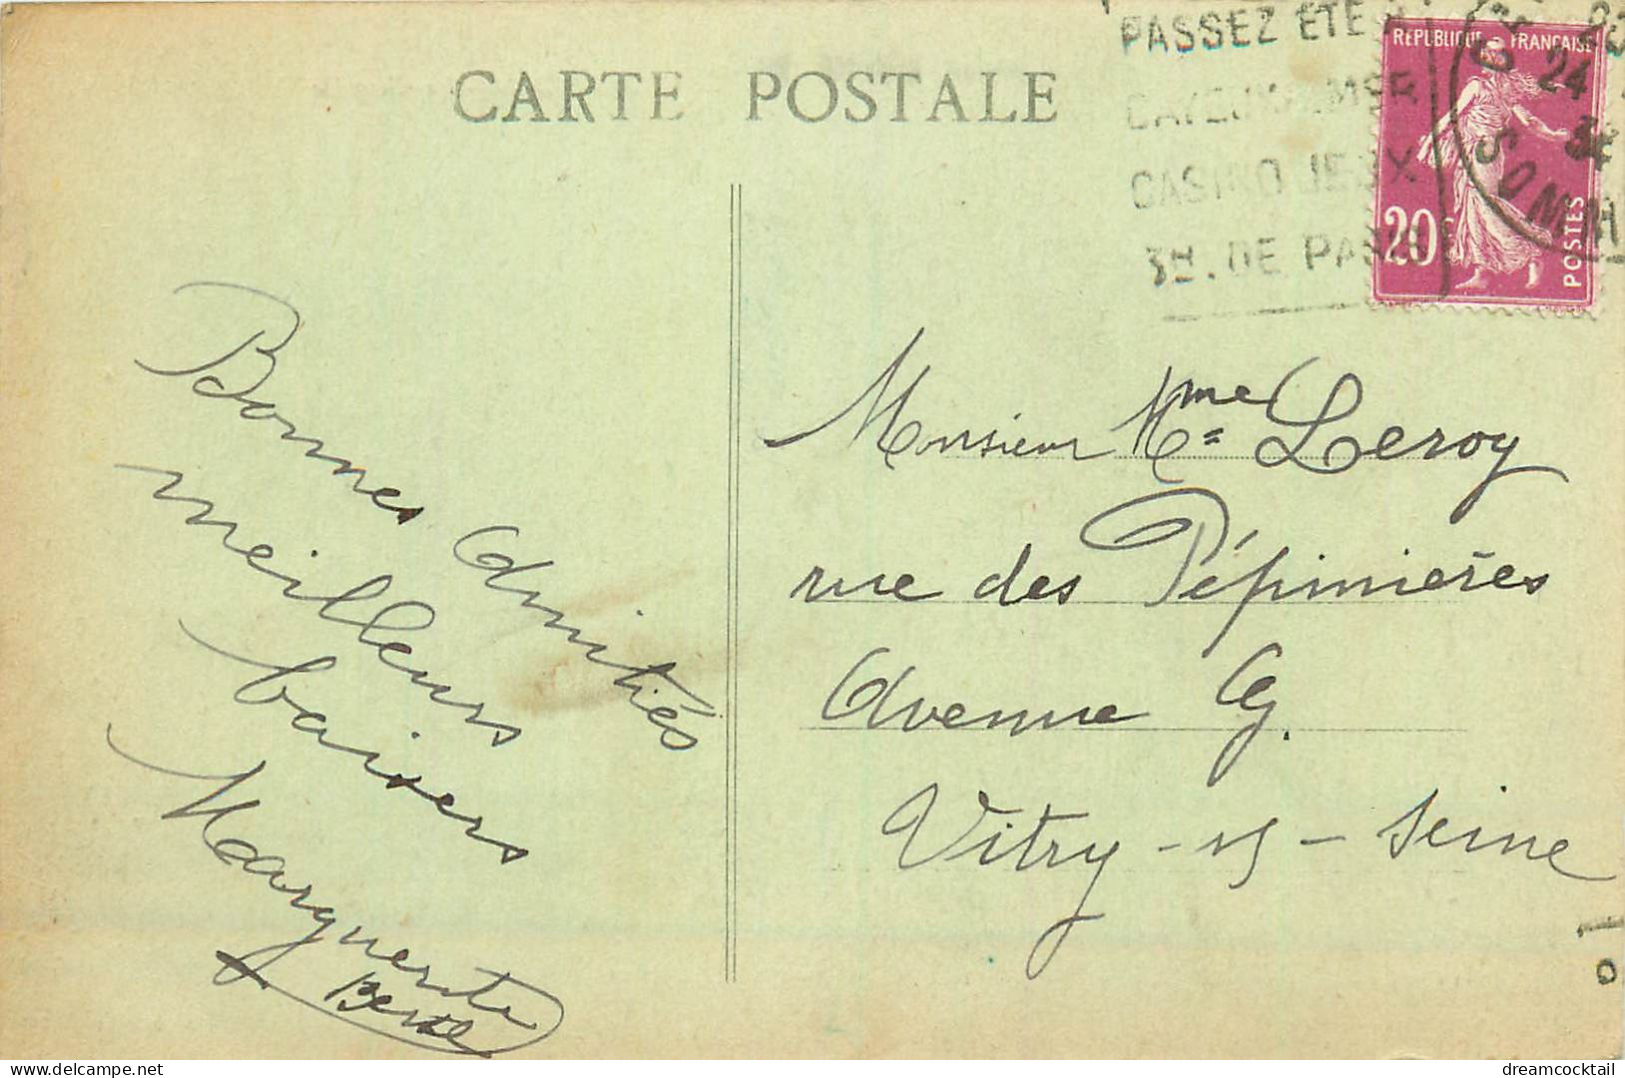 CARTE POSTALE
PASSEZ ÉTÉ A
CAYEUX S/MER
CASINO JEUX
3H. DE PARIS
24
34
SOMME
REPUBLIQUE FRANÇAISE
20c
POSTES
Bonnes Amitiés
meilleurs
baisers
Marguerite
Monsieur Mme Leroy
rue des Pépinières
Avenue G.
Vitry-s/-Seine
dreamcocktail